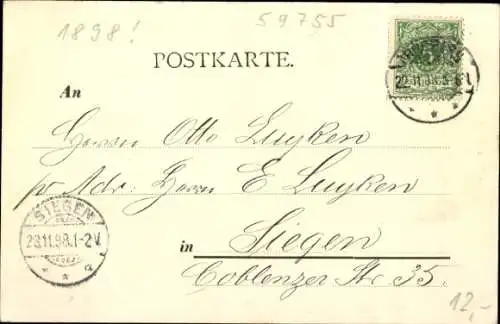 1898!
59755
POSTKARTE.
22.11.98.5-6N.
An
Herrn Otto Luyken
pr Adr: Herrn E Luyken
SIEGEN
23.11.98.1-2V.
* * a
in Siegen
Coblenzer Str. 35.
12,-